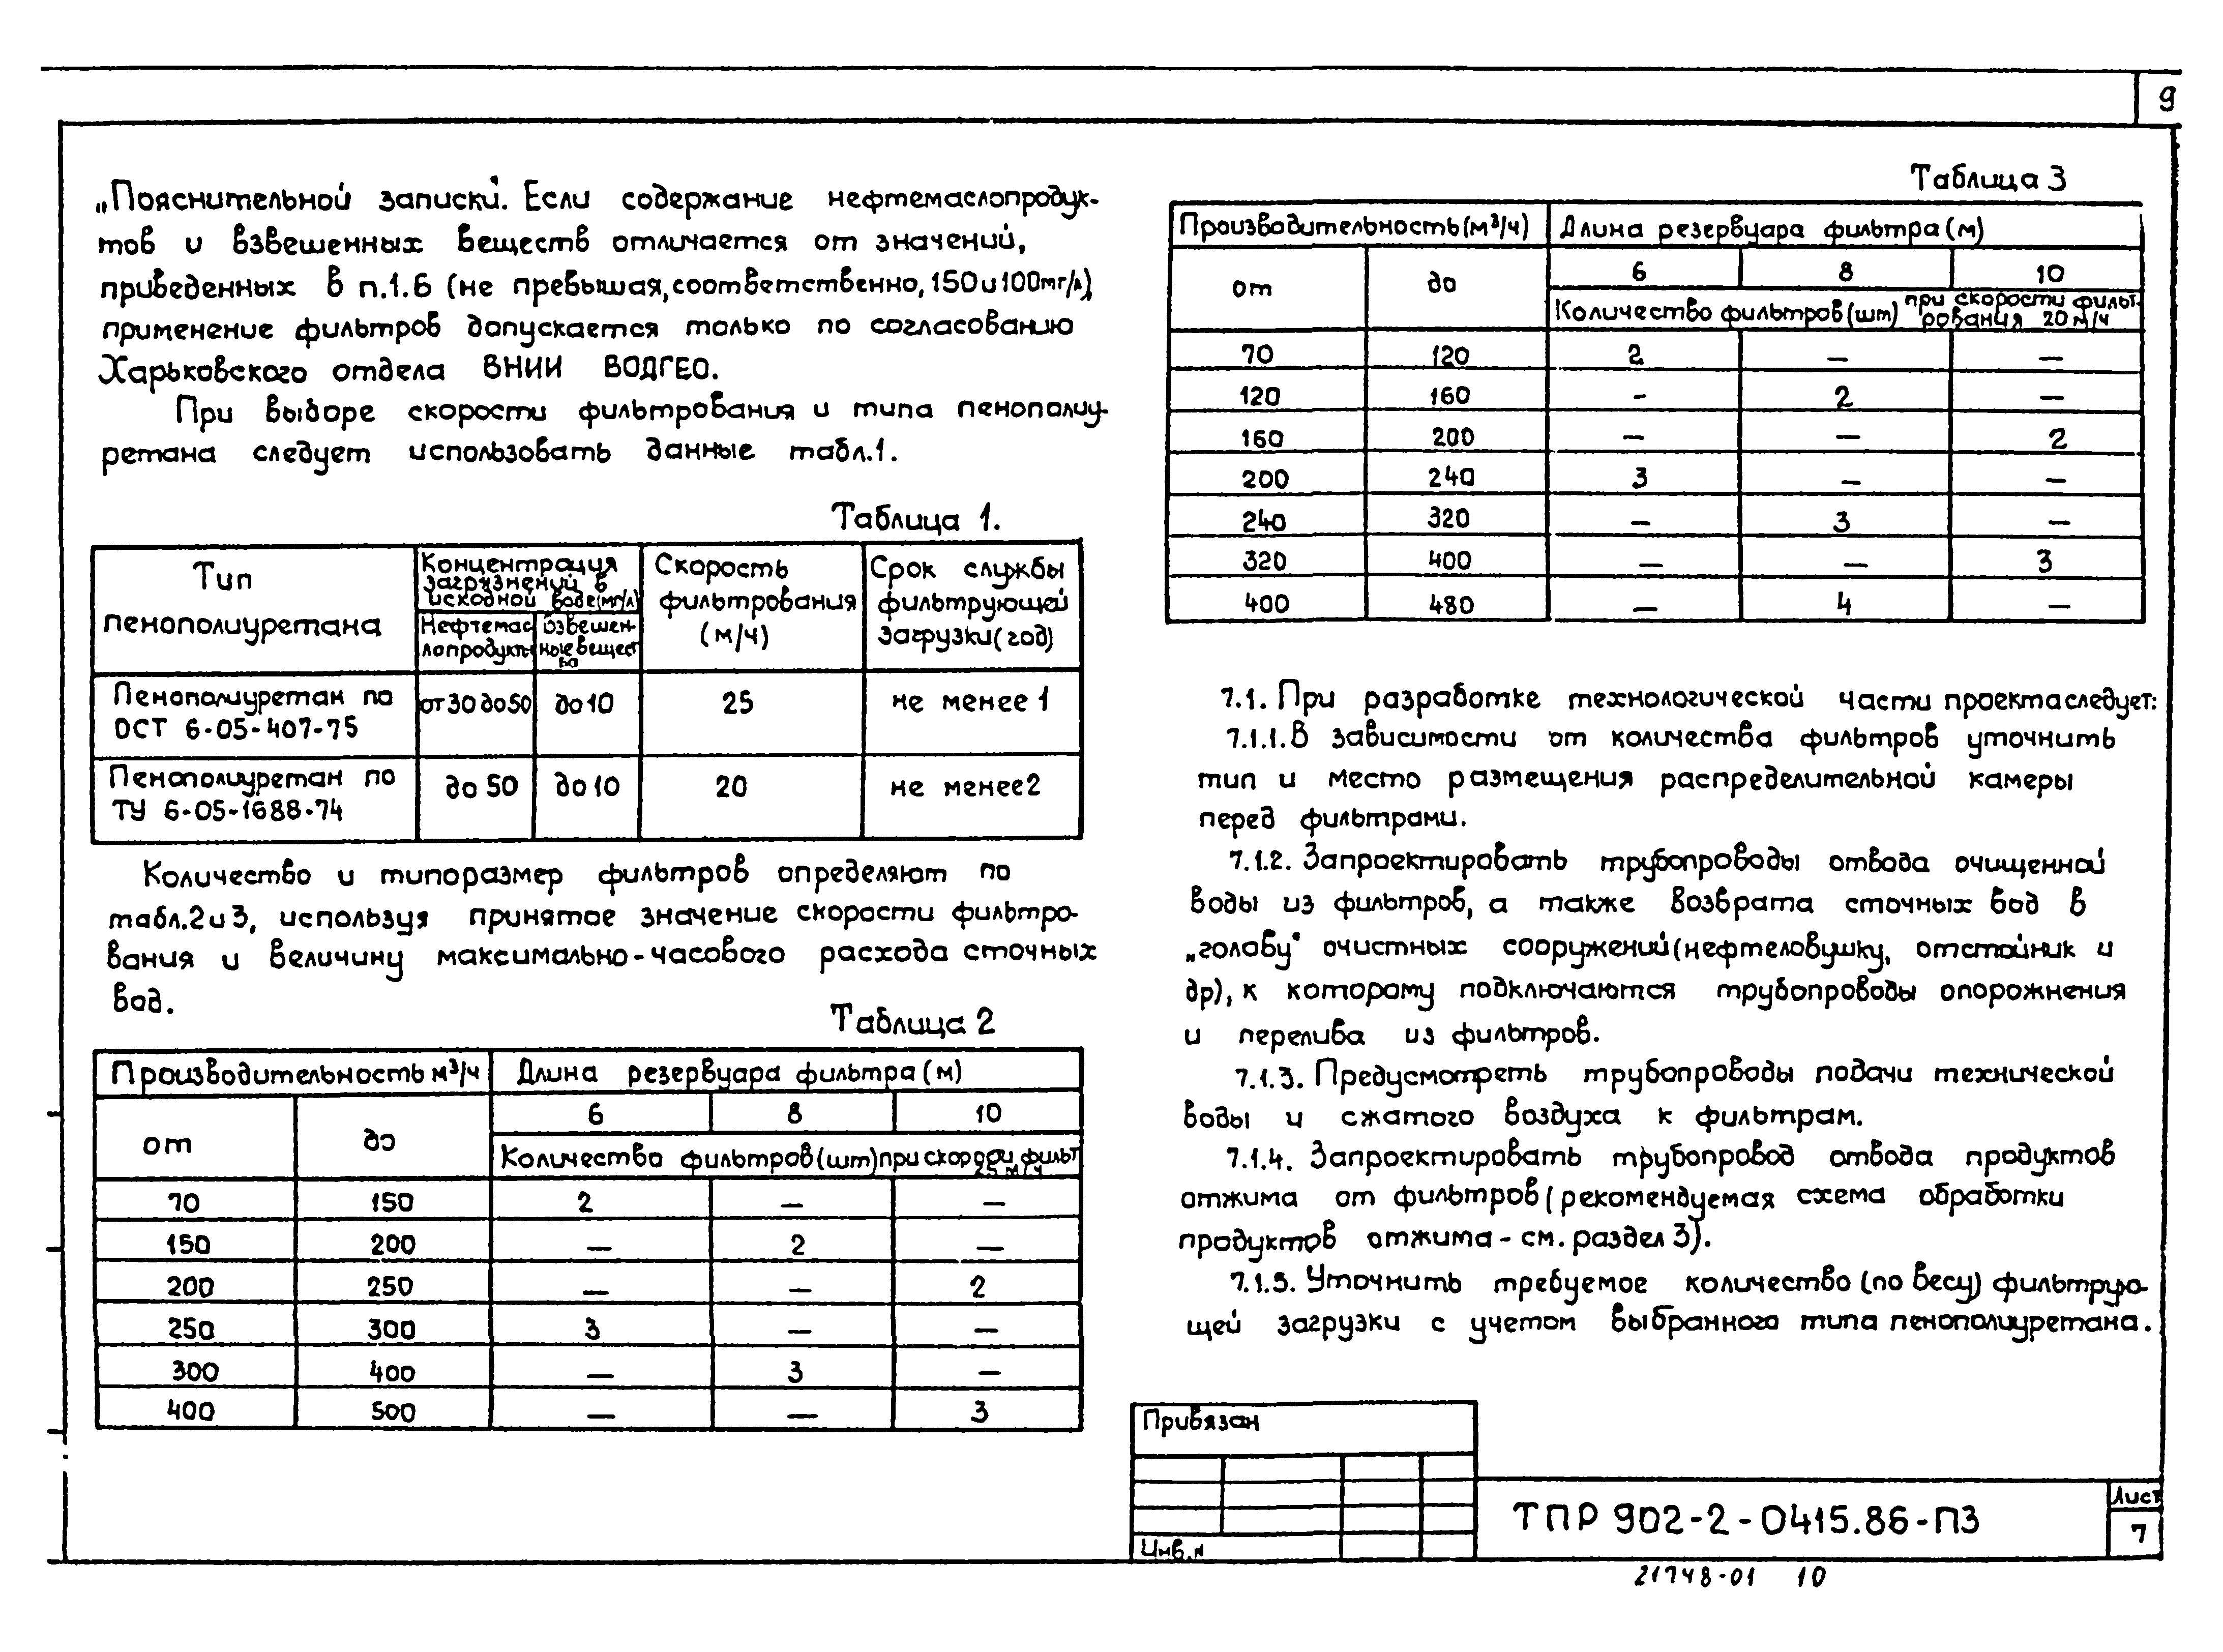 9
„Пояснительной записки". Если содержание нефтемаслопродук-
тов и взвешенных веществ отличается от значений,
приведенных в п.1.6 (не превышая, соответственно, 150 и 100 мг/л),
применение фильтров допускается только по согласованию
Харьковского отдела ВНИИ ВОДГЕО.
При выборе скорости фильтрования и типа пенополиу-
ретана следует использовать данные табл.1.
Таблица 1.
Тип пенополиуретана | Концентрация загрязнений в исходной воде (мг/л) | Скорость фильтрования (м/ч) | Срок службы фильтрующей загрузки (год)
Нефтемаслопродукты | Взвешенные вещества
Пенополиуретан по ОСТ 6-05-407-75 | от 30 до 50 | до 10 | 25 | не менее 1
Пенополиуретан по ТУ 6-05-1688-74 | до 50 | до 10 | 20 | не менее 2
Количество и типоразмер фильтров определяют по
табл.2 и 3, используя принятое значение скорости фильтро-
вания и величину максимально-часового расхода сточных
вод.
Таблица 2
Производительность м³/ч | Длина резервуара фильтра (м)
от | до | 6 | 8 | 10
Количество фильтров (шт) при скорости фильт 25 м/ч
70 | 150 | 2 | — | —
150 | 200 | — | 2 | —
200 | 250 | — | — | 2
250 | 300 | 3 | — | —
300 | 400 | — | 3 | —
400 | 500 | — | — | 3
Таблица 3
Производительность (м³/ч) | Длина резервуара фильтра (м)
от | до | 6 | 8 | 10
Количество фильтров (шт) при скорости фильт-рования 20 м/ч
70 | 120 | 2 | — | —
120 | 160 | - | 2 | —
160 | 200 | — | — | 2
200 | 240 | 3 | — | —
240 | 320 | — | 3 | —
320 | 400 | — | — | 3
400 | 480 | — | 4 | —
7.1. При разработке технологической части проекта следует:
7.1.1. В зависимости от количества фильтров уточнить
тип и место размещения распределительной камеры
перед фильтрами.
7.1.2. Запроектировать трубопроводы отвода очищенной
воды из фильтров, а также возврата сточных вод в
„голову" очистных сооружений (нефтеловушку, отстойник и
др), к которому подключаются трубопроводы опорожнения
и перелива из фильтров.
7.1.3. Предусмотреть трубопроводы подачи технической
воды и сжатого воздуха к фильтрам.
7.1.4. Запроектировать трубопровод отвода продуктов
отжима от фильтров (рекомендуемая схема обработки
продуктов отжима - см. раздел 3).
7.1.5. Уточнить требуемое количество (по весу) фильтрую-
щей загрузки с учетом выбранного типа пенополиуретана.
Привязан
Инв.н
ТПР 902-2-0415.86-ПЗ
Лист
7
21748-01 10